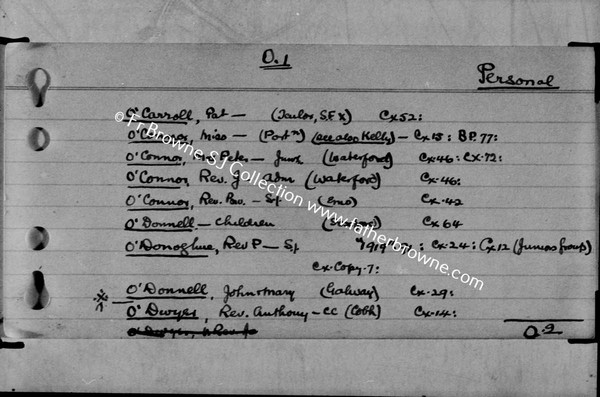 O.1
Personal
O'Carroll, Pat — (Tailor, S.F.X) Cx 52:
O'Connor, Miss — (Portn) (see also Kelly) — Cx 15: BP. 77:
O'Connor, Peter — (Waterford) Cx. 46: Cx. 72:
O'Connor, Rev. J Adm (Waterford) Cx. 46:
O'Connor, Rev. — SJ (Emo) Cx. 42
O'Donnell — Children Cx 64
O'Donoghue, Rev P — SJ Cx. 24: Cx 12 (Juniors Group)
Cx. Copy. 7:
O'Donnell, John & Mary (Galway) Cx. 29:
O'Dwyer, Rev. Anthony — CC (Cobh) Cx. 14:
O.2
© Fr Browne SJ Collection www.fatherbrowne.com